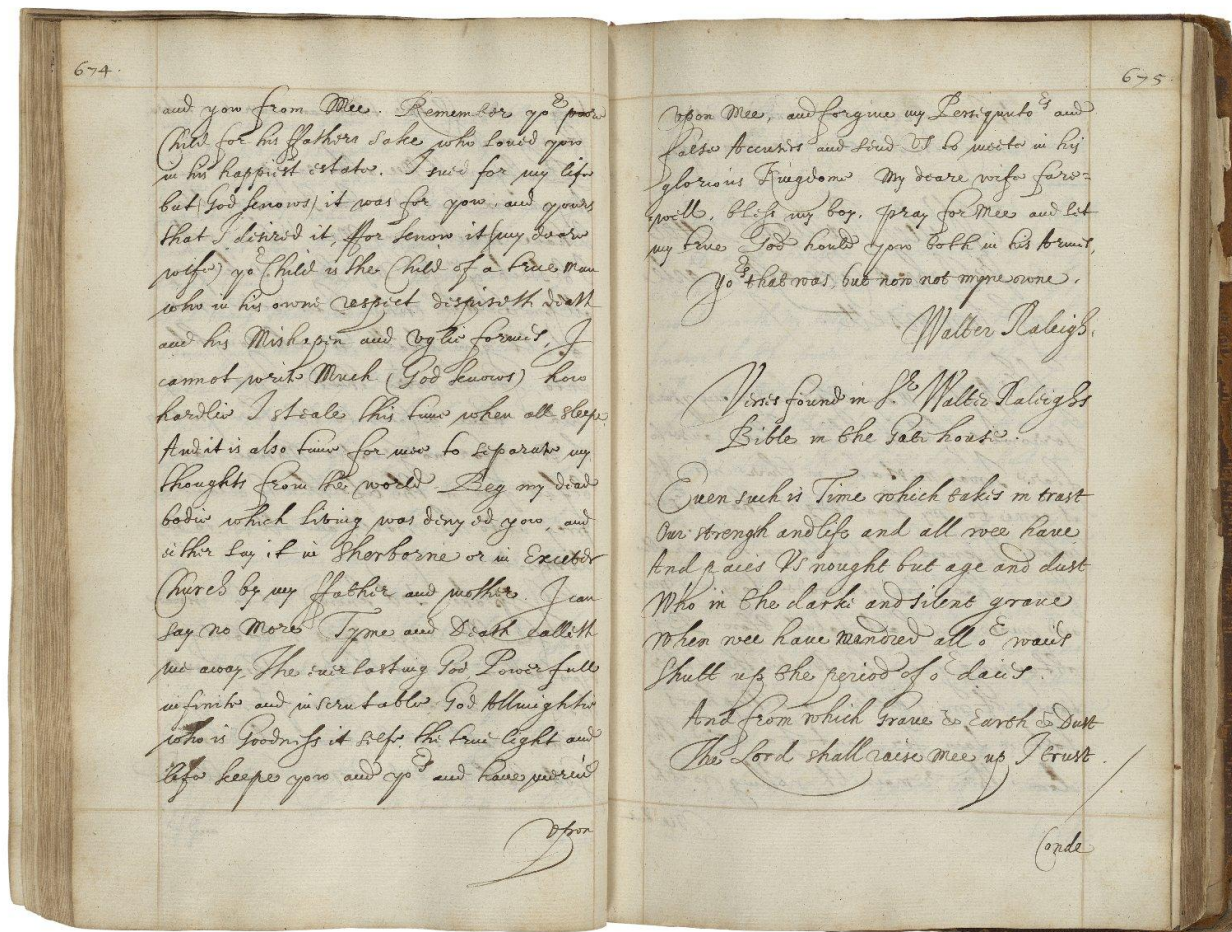 674.
and yow from Mee. Remember yor poore
Child for his ffathers sake who loved yow
in his happiest estate. I sued for my life
but (God knows) it was for yow and yours
that I desired it, ffor know it (my deare
wife) yor Child is the Child of a true Man
who in his owne respect despiseth death
and his Mishapen and Vglie formes. I
cannot write Much (God knows) how
hardlie I steale this time when all sleepe.
And it is also time for mee to separate my
thoughts from the world. Beg my dead
bodie which living was denyed yow, and
either lay it in Sherborne or in Exceter
Church by my ffather and mother. I can
say no More Tyme and Death calleth
me away. The everlasting God Powerfull
infinite and inscrutable God Allmightie
who is Goodness it selfe, the true light and
life keepe yow and yors and have mercie
vpon
675.
vpon Mee, and forgive my Persequutors and
false Accusers and send Vs to meete in his
glorious Kingdome My deare wife fare=
=well. bless my boy. pray for Mee and let
my true God hould yow both in his Armes.
Yors that was, but now not myne owne.
Walter Raleigh.
Verses found in Sr. Walter Raleighs
Bible in the Gate house.
Euen such is Time which takes in trast
Our strength and life and all wee have
And paies Vs nought but age and dust
Who in the darke and silent graue
When wee haue wandred all or waies
Shutt up the period of or daies.
And from which Graue & Earth & Dust
The Lord shall raise Mee up I trust.
Conde